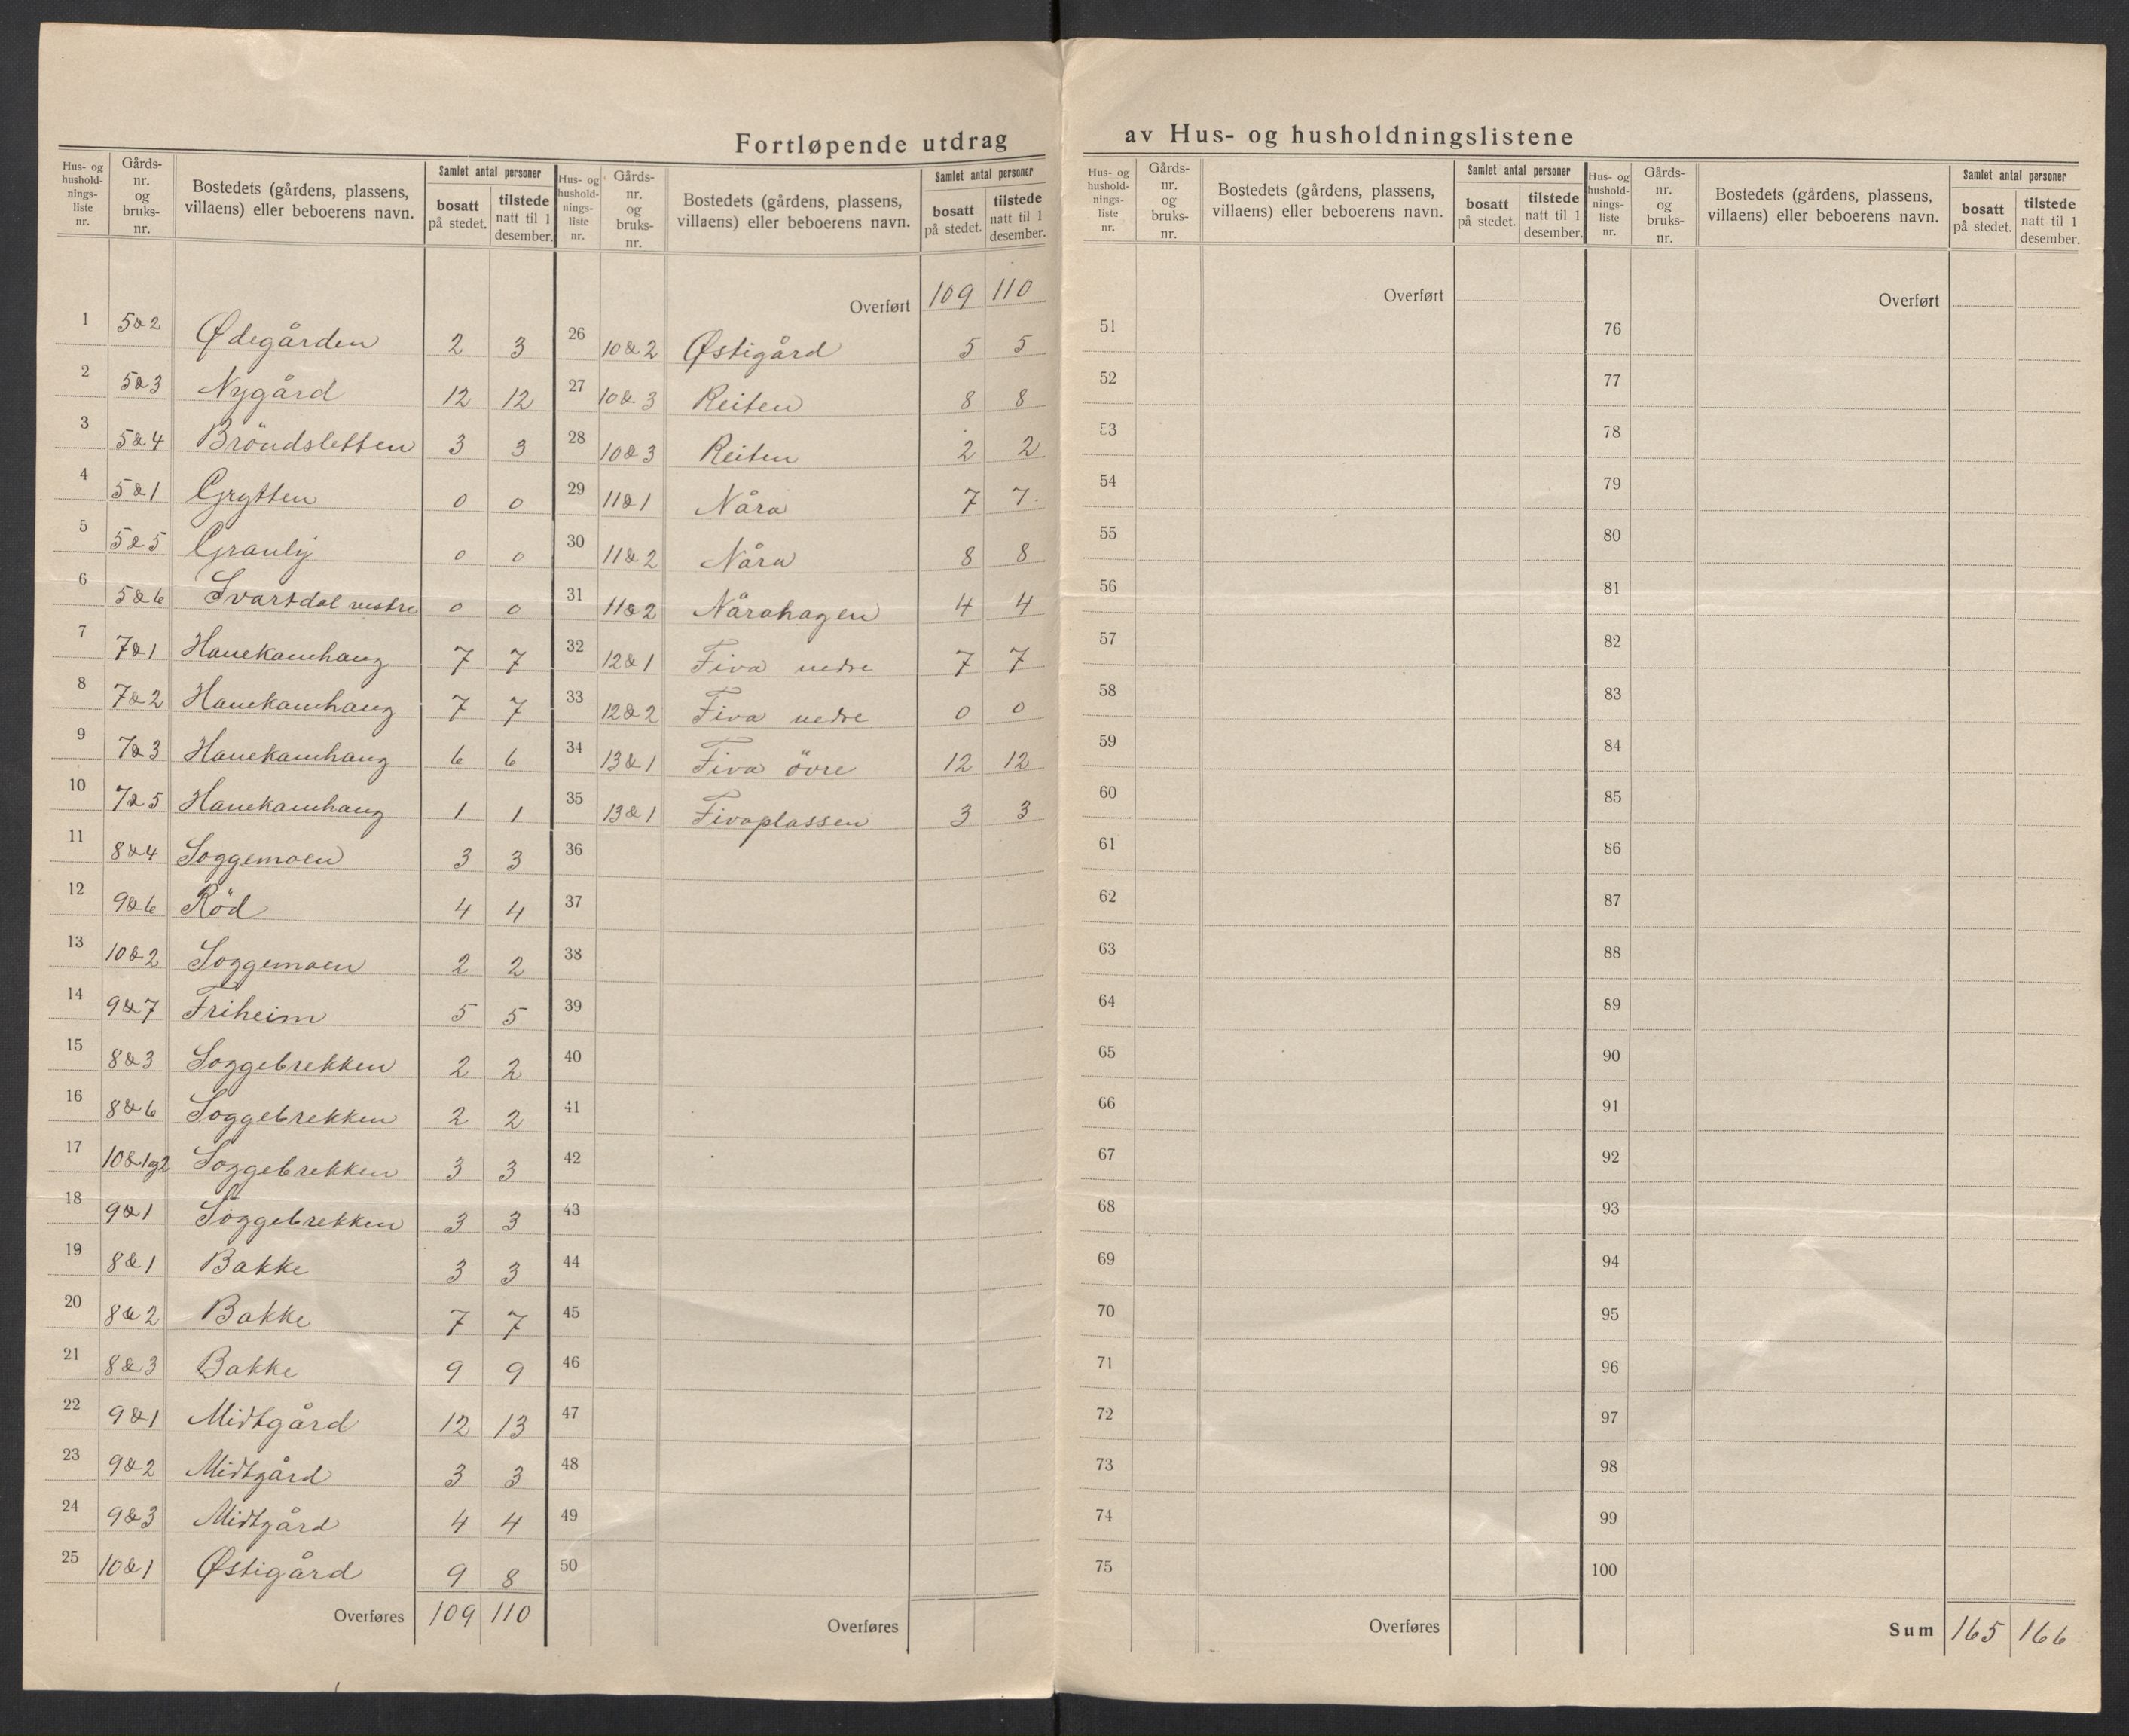 Fortløpende utdrag av Hus- og husholdningslistene
Hus- og husholdnings-liste nr. | Gårds-nr. og bruks-nr. | Bostedets (gårdens, plassens, villaens) eller beboerens navn. | Samlet antal personer | bosatt på stedet. | tilstede natt til 1 desember.
1 5&2 Ødegården 2 3
2 5&3 Nygård 12 12
3 5&4 Bröndsletten 3 3
4 5&1 Grytten 0 0
5 5&5 Granly 0 0
6 5&6 Svartdal vestre 0 0
7 7&1 Hanekamhaug 7 7
8 7&2 Hanekamhaug 7 7
9 7&3 Hanekamhaug 6 6
10 7&5 Hanekamhaug 1 1
11 8&4 Soggemoen 3 3
12 9&6 Röd 4 4
13 10&2 Soggemoen 2 2
14 9&7 Friheim 5 5
15 8&3 Soggebrekken 2 2
16 8&6 Soggebrekken 2 2
17 10&1og2 Soggebrekken 3 3
18 9&1 Soggebrekken 3 3
19 8&1 Bakke 3 3
20 8&2 Bakke 7 7
21 8&3 Bakke 9 9
22 9&1 Midtgård 12 13
23 9&2 Midtgård 3 3
24 9&3 Midtgård 4 4
25 10&1 Østigård 9 8
Overføres 109 110
Hus- og husholdnings-liste nr. | Gårds-nr. og bruks-nr. | Bostedets (gårdens, plassens, villaens) eller beboerens navn. | Samlet antal personer | bosatt på stedet. | tilstede natt til 1 desember.
Overført 109 110
26 10&2 Østigård 5 5
27 10&3 Reiten 8 8
28 10&3 Reiten 2 2
29 11&1 Nåra 7 7.
30 11&2 Nåra 8 8
31 11&2 Nårahagen 4 4
32 12&1 Fiva nedre 7 7
33 12&2 Fiva nedre 0 0
34 13&1 Fiva övre 12 12
35 13&1 Fivaplassen 3 3
36
37
38
39
40
41
42
43
44
45
46
47
48
49
50
Overføres
Hus- og husholdnings-liste nr. | Gårds-nr. og bruks-nr. | Bostedets (gårdens, plassens, villaens) eller beboerens navn. | Samlet antal personer | bosatt på stedet. | tilstede natt til 1 desember.
Overført
51
52
53
54
55
56
57
58
59
60
61
62
63
64
65
66
67
68
69
70
71
72
73
74
75
Overføres
Hus- og husholdnings-liste nr. | Gårds-nr. og bruks-nr. | Bostedets (gårdens, plassens, villaens) eller beboerens navn. | Samlet antal personer | bosatt på stedet. | tilstede natt til 1 desember.
Overført
76
77
78
79
80
81
82
83
84
85
86
87
88
89
90
91
92
93
94
95
96
97
98
99
100
Sum 165 166